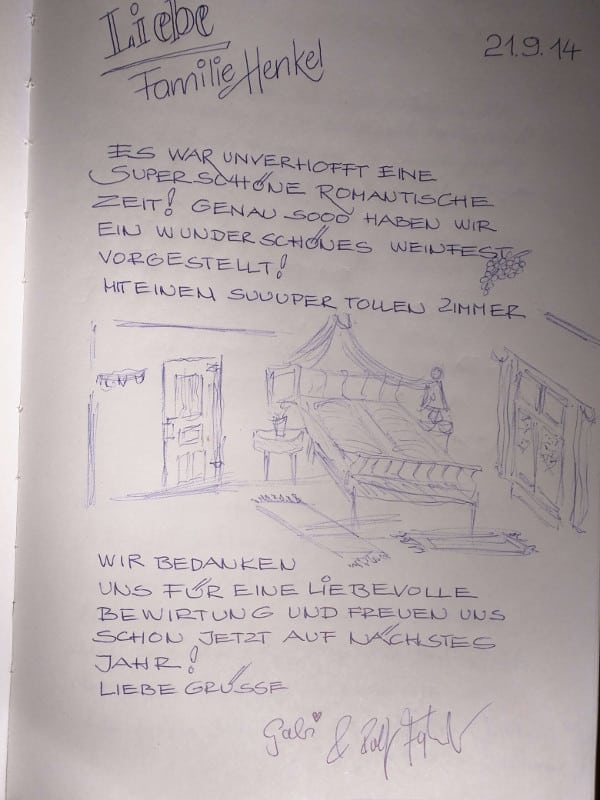 Liebe
Familie Henkel
21.9.14
ES WAR UNVERHOFFT EINE
SUPERSCHÖNE ROMANTISCHE
ZEIT! GENAU SOOO HABEN WIR
EIN WUNDERSCHÖNES WEINFEST
VORGESTELLT!
MIT EINEM SUUUPER TOLLEN ZIMMER
WIR BEDANKEN
UNS FÜR EINE LIEBEVOLLE
BEWIRTUNG UND FREUEN UNS
SCHON JETZT AUF NÄCHSTES
JAHR!
LIEBE GRÜSSE
Gabi & Rolf